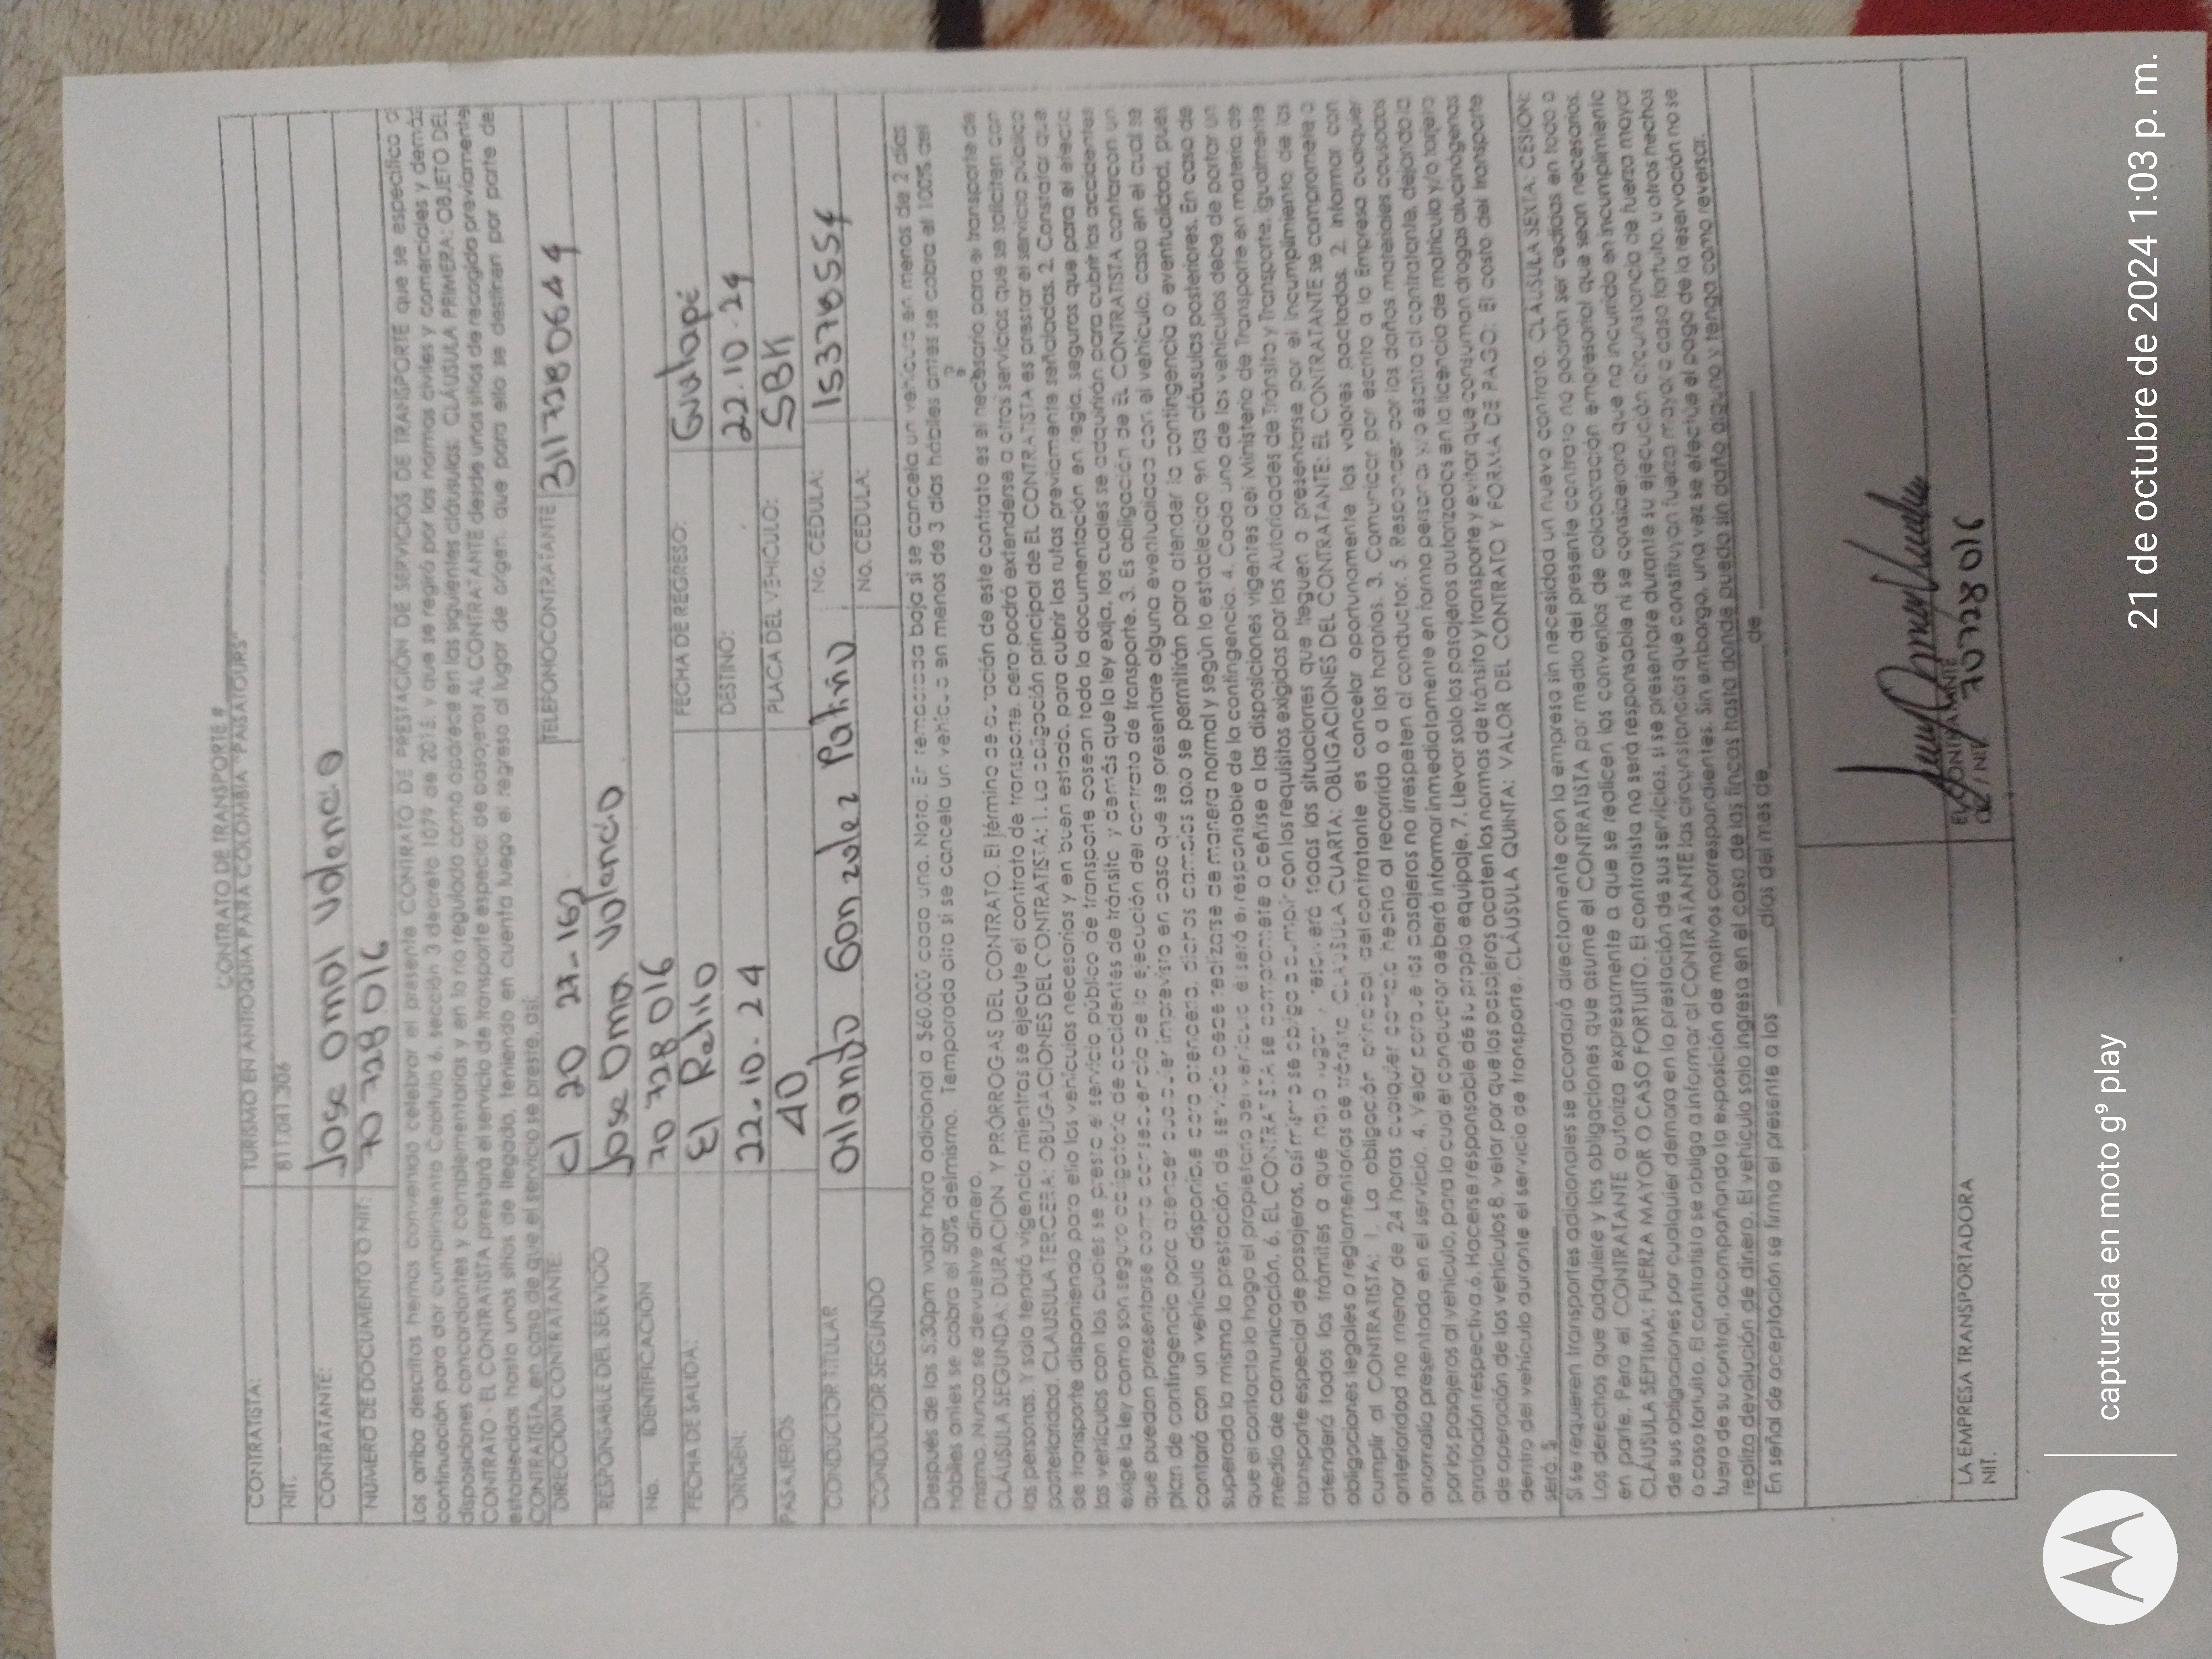 CONTRATO DE TRANSPORTE #
CONTRATISTA: TURISMO EN ANTIOQUIA PARA COLOMBIA "PASATOURS"
NIT: 811.041.306
CONTRATANTE: Jose Omar Valencia
NUMERO DE DOCUMENTO O NIT: 70 728 016
Los arriba descritos hemos convenido celebrar el presente CONTRATO DE PRESTACIÓN DE SERVICIOS DE TRANSPORTE que se especifica a
continuación para dar cumplimiento Capitulo 6, sección 3 decreto 1079 de 2015, y que se regirá por las normas civiles y comerciales y demás
disposiciones concordantes y complementarias y en lo no regulado como aparece en las siguientes cláusulas: CLÁUSULA PRIMERA: OBJETO DEL
CONTRATO - EL CONTRATISTA prestará el servicio de transporte especial de pasajeros AL CONTRATANTE desde unos sitios de recogida previamente
establecidos hasta unos sitios de llegada, teniendo en cuenta luego el regreso al lugar de origen, que para ello se destinan por parte del
CONTRATISTA, en caso de que el servicio se preste, así:
DIRECCIÓN CONTRATANTE: Cl 20 27-162 TELEFONOCONTRATANTE 3117280644
RESPONSABLE DEL SERVICIO Jose Omar Valencia
No. IDENTIFICACIÓN 70 728 016
FECHA DE SALIDA: El Retiro FECHA DE REGRESO: Guatapé
ORIGEN: 22.10.24 DESTINO: 22.10.24
PASAJEROS 40 PLACA DEL VEHICULO: SBK
CONDUCTOR TITULAR Orlando Gonzalez Patiño No. CEDULA: 15378554
CONDUCTOR SEGUNDO No. CEDULA:
Después de las 5.30pm valor hora adicional a $60.000 cada una. Nota: En temporada baja si se cancela un vehículo en menos de 2 días
hábiles antes se cobra el 50% del mismo. Temporada alta si se cancela un vehículo en menos de 3 días hábiles antes se cobra el 100% del
mismo. Nunca se devuelve dinero.
CLÁUSULA SEGUNDA: DURACION Y PRÓRROGAS DEL CONTRATO. El término de duración de este contrato es el necesario para el transporte de
las personas. Y solo tendrá vigencia mientras se ejecute el contrato de transporte, pero podrá extenderse a otros servicios que se soliciten con
posterioridad. CLAUSULA TERCERA: OBLIGACIONES DEL CONTRATISTA: 1. La obligación principal de EL CONTRATISTA es prestar el servicio público
de transporte disponiendo para ello los vehículos necesarios y en buen estado, para cubrir las rutas previamente señaladas. 2. Constatar que
los vehículos con los cuales se presta el servicio público de transporte posean toda la documentación en regla, seguros que para el efecto
exige la ley como son seguro obligatorio de accidentes de tránsito y demás que la ley exija, los cuales se adquirirán para cubrir los accidentes
que puedan presentarse como consecuencia de la ejecución del contrato de transporte. 3. Es obligación de EL CONTRATISTA contar con un
plan de contingencia para atender cualquier imprevisto en caso que se presentare alguna eventualidad con el vehículo, caso en el cual se
contará con un vehículo disponible para atenderla, dichos cambios solo se permitirán para atender la contingencia o eventualidad, pues
superada la misma la prestación de servicio debe realizarse de manera normal y según lo establecido en las cláusulas posteriores. En caso de
que el contacto lo haga el propietario del vehículo él será el responsable de la contingencia. 4. Cada uno de los vehículos debe de portar un
medio de comunicación. 6. EL CONTRATISTA se compromete a ceñirse a las disposiciones vigentes del Ministerio de Transporte en materia de
transporte especial de pasajeros, así mismo se obliga a cumplir con los requisitos exigidos por las Autoridades de Tránsito y Transporte, igualmente
atenderá todos los trámites a que haya lugar y resolverá todas las situaciones que lleguen a presentarse por el incumplimiento de las
obligaciones legales o reglamentarias de tránsito. CLAUSULA CUARTA: OBLIGACIONES DEL CONTRATANTE: EL CONTRATANTE se compromete a
cumplir al CONTRATISTA: 1. La obligación principal del contratante es cancelar oportunamente los valores pactados. 2. Informar con
anterioridad no menor de 24 horas cualquier cambio hecho al recorrido o a los horarios. 3. Comunicar por escrito a la Empresa cualquier
anomalía presentada en el servicio. 4. Velar porque los pasajeros no irrespeten al conductor. 5. Responder por los daños materiales causados
por los pasajeros al vehículo, para lo cual el conductor deberá informar inmediatamente en forma personal y/o escrita al contratante, dejando la
anotación respectiva. 6. Hacerse responsable de su propio equipaje. 7. Llevar solo los pasajeros autorizados en la licencia de matrícula y/o tarjeta
de operación de los vehículos 8. velar por que los pasajeros acaten las normas de tránsito y transporte y evitar que consuman drogas alucinógenas
dentro del vehículo durante el servicio de transporte. CLÁUSULA QUINTA: VALOR DEL CONTRATO Y FORMA DE PAGO: El costo del transporte
será $
Si se requieren transportes adicionales se acordará directamente con la empresa sin necesidad un nuevo contrato. CLÁUSULA SEXTA: CESION:
Los derechos que adquiere y las obligaciones que asume el CONTRATISTA por medio del presente contrato no podrán ser cedidas en todo o
en parte. Pero el CONTRATANTE autoriza expresamente a que se realicen los convenios de colaboración empresarial que sean necesarios.
CLÁUSULA SEPTIMA: FUERZA MAYOR O CASO FORTUITO. El contratista no será responsable ni se considerará que ha incurrido en incumplimiento
de sus obligaciones por cualquier demora en la prestación de sus servicios, si se presentare durante su ejecución circunstancia de fuerza mayor
o caso fortuito. El contratista se obliga a informar al CONTRATANTE las circunstancias que constituyan fuerza mayor, o caso fortuito, u otros hechos
fuera de su control, acompañando la exposición de motivos correspondientes. Sin embargo, una vez se efectúe el pago de la reservación no se
realiza devolución de dinero. El vehículo solo ingresa en el caso de las fincas hasta donde pueda sin daño alguno y tenga como reversar.
En señal de aceptación se firma el presente a los ____ días del mes de ____ de ____
LA EMPRESA TRANSPORTADORA EL CONTRATANTE
NIT. CC / NIT 70728016
capturada en moto g⁹ play 21 de octubre de 2024 1:03 p. m.